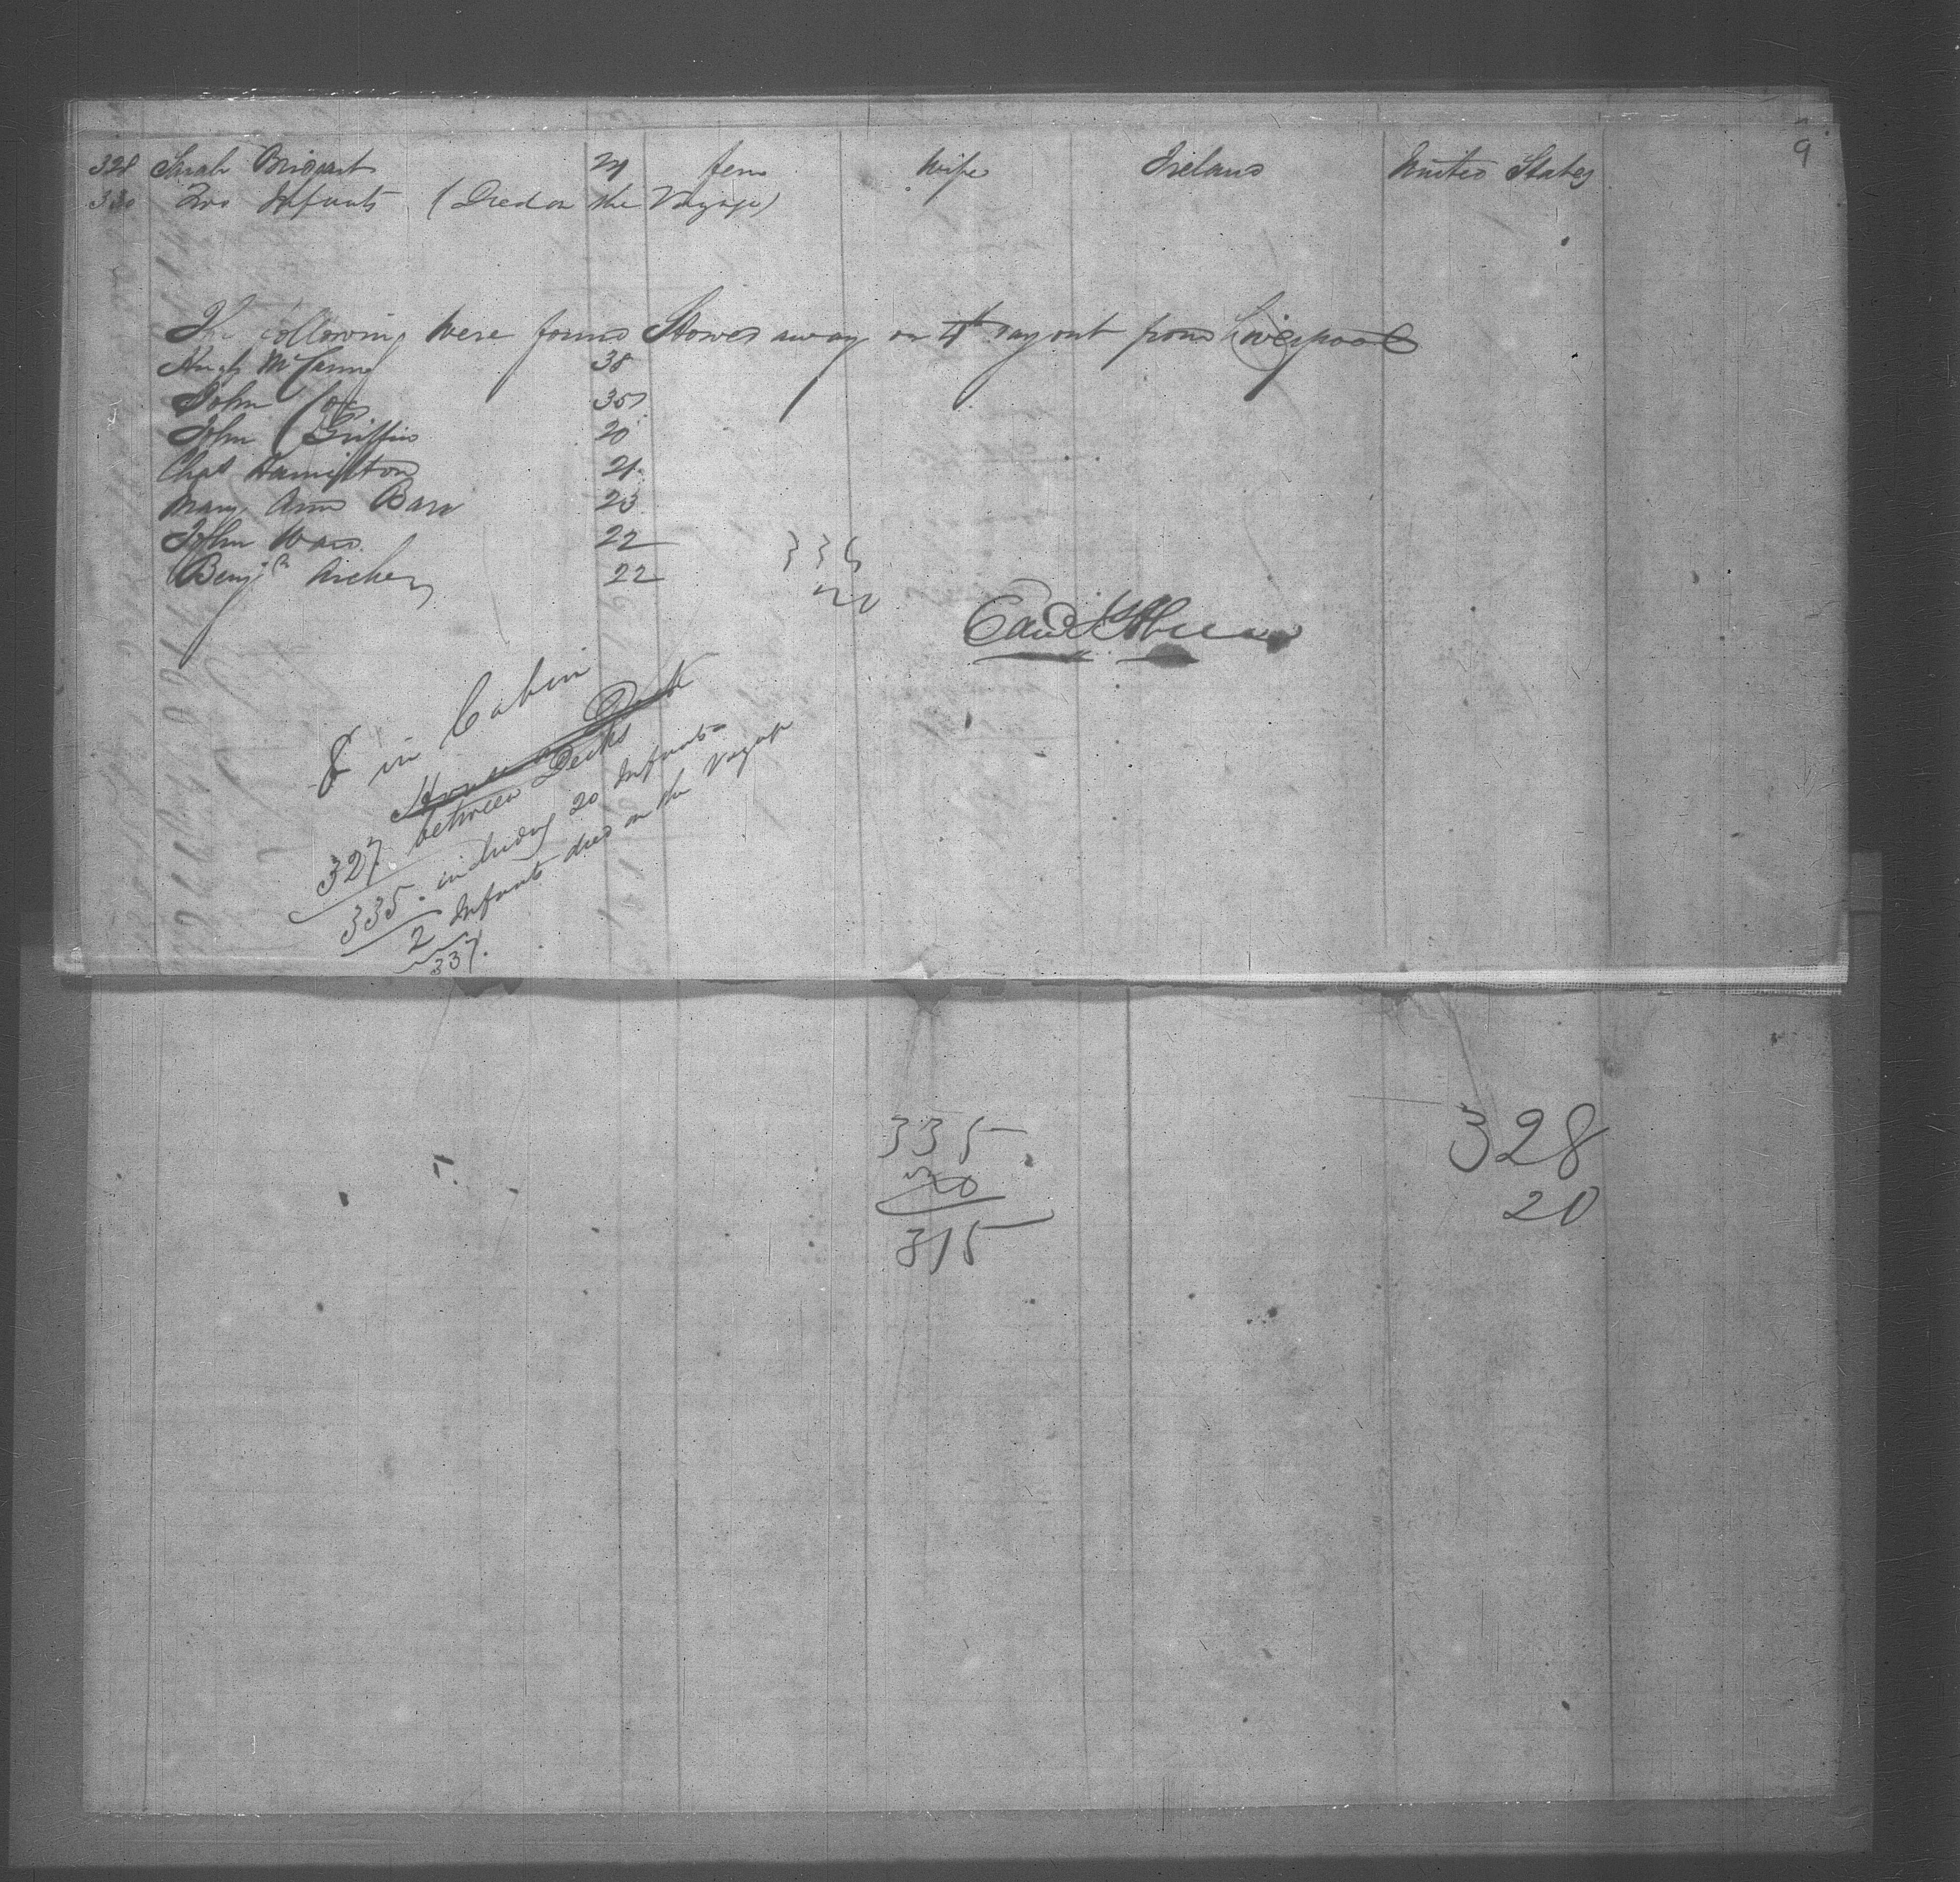 9
328 Sarah 24 fem Wife Ireland United States
330 Two Infants (Died on the Voyage)
The following were found Stowed away on 4th day out from Liverpool
Hugh McCann 38
John Coy 35
John Griffin 20
Chas Hamilton 21
Mary Ann Barr 23
John Ward 22
Benjn Archer 22
336
20
8 in Cabin
House on Deck
327 between Decks
335. including 20 Infants
2 Infants died on the Voyage
337.
335
20
315
328
20